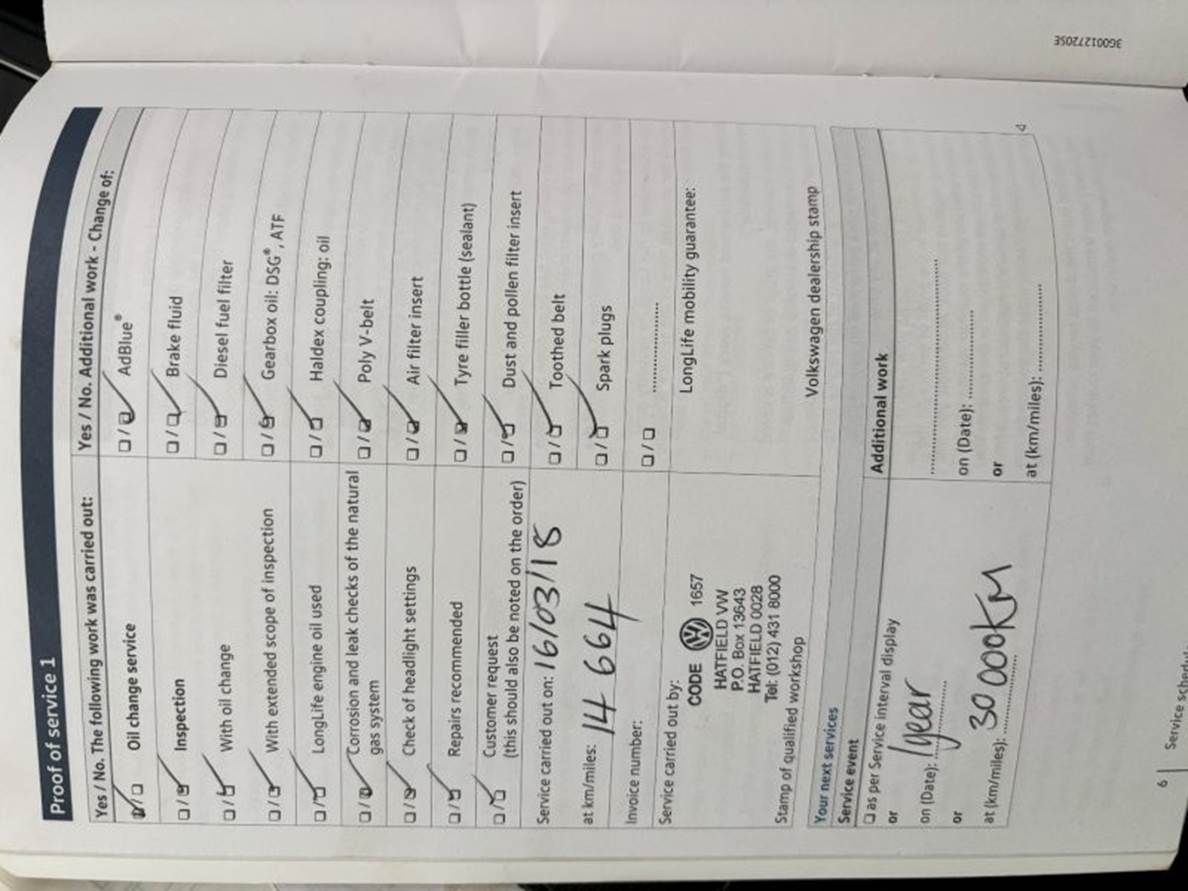 3G0012720SE
Proof of service 1
Yes / No. The following work was carried out:
Oil change service
Inspection
With oil change
With extended scope of inspection
LongLife engine oil used
Corrosion and leak checks of the natural
gas system
Check of headlight settings
Repairs recommended
Customer request
(this should also be noted on the order)
Service carried out on: 16/03/18
at km/miles: 14 664
Invoice number:
Service carried out by:
CODE 1657
HATFIELD VW
P.O. Box 13643
HATFIELD 0028
Tel: (012) 431 8000
Stamp of qualified workshop
Yes / No. Additional work - Change of:
AdBlue®
Brake fluid
Diesel fuel filter
Gearbox oil: DSG®, ATF
Haldex coupling: oil
Poly V-belt
Air filter insert
Tyre filler bottle (sealant)
Dust and pollen filter insert
Toothed belt
Spark plugs
LongLife mobility guarantee:
Volkswagen dealership stamp
Your next services
Service event
as per Service interval display
or
on (Date): 1year
or
at (km/miles): 30 000KM
Additional work
on (Date):
or
at (km/miles):
6 | Service